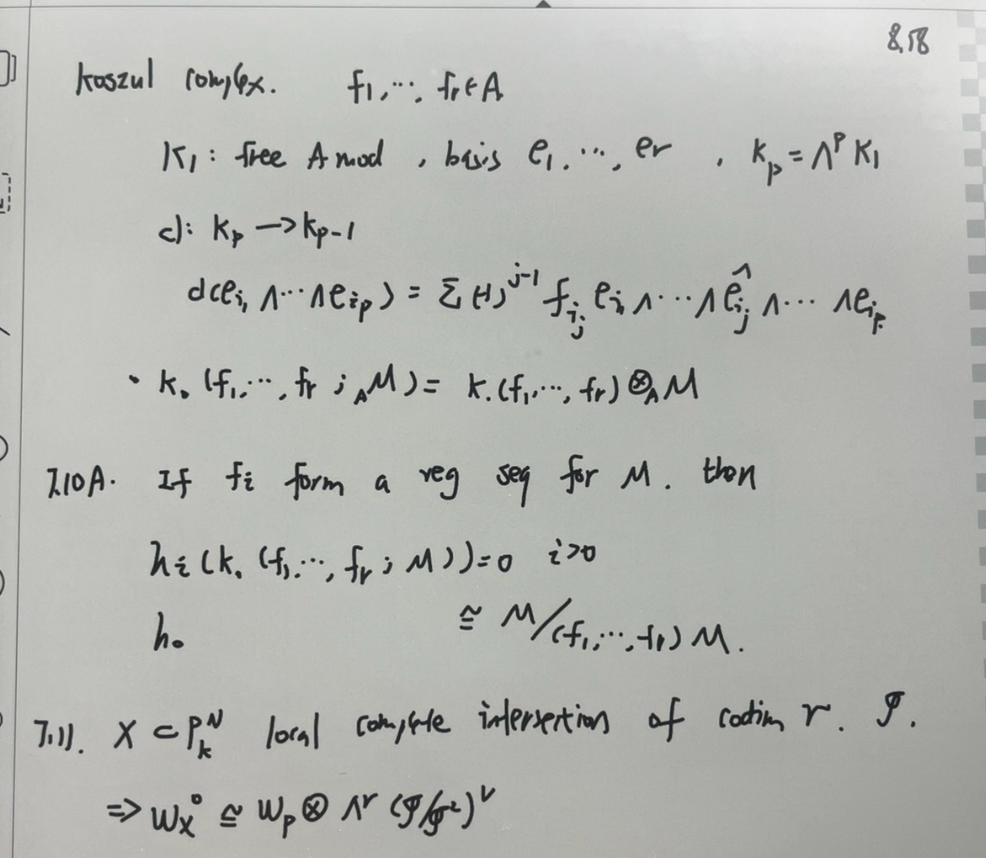 8.18
Koszul complex. f₁,⋯, fᵣ∈A
K₁ : free A mod , basis e₁, ⋯, eᵣ , Kₚ = Λᵖ K₁
d: Kₚ → Kₚ₋₁
d(e_{i₁} ∧⋯∧e_{iₚ}) = Σ(-1)^{j-1} f_{i_j} e_{i₁} ∧⋯∧ ê_{i_j} ∧⋯ ∧e_{iₚ}.
• K. (f₁,⋯, fᵣ ; _A M) = K.(f₁,⋯, fᵣ) ⊗_A M
7.10A. If fᵢ form a reg seq for M. then
hᵢ (K. (f₁,⋯, fᵣ ; M))=0 i>0
h₀ ≅ M/(f₁,⋯,fᵣ) M.
7.11. X ⊂ P_k^N local complete intersection of codim r. 𝓘.
⇒ W_X° ≅ W_P ⊗ Λ^r (𝓘/𝓘²)^∨